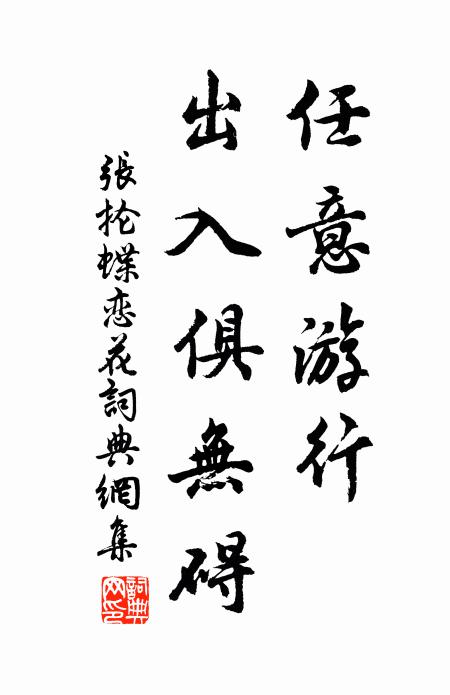 任意游行
出入俱無碍
張抡蝶恋花詞典網集
詞典网印